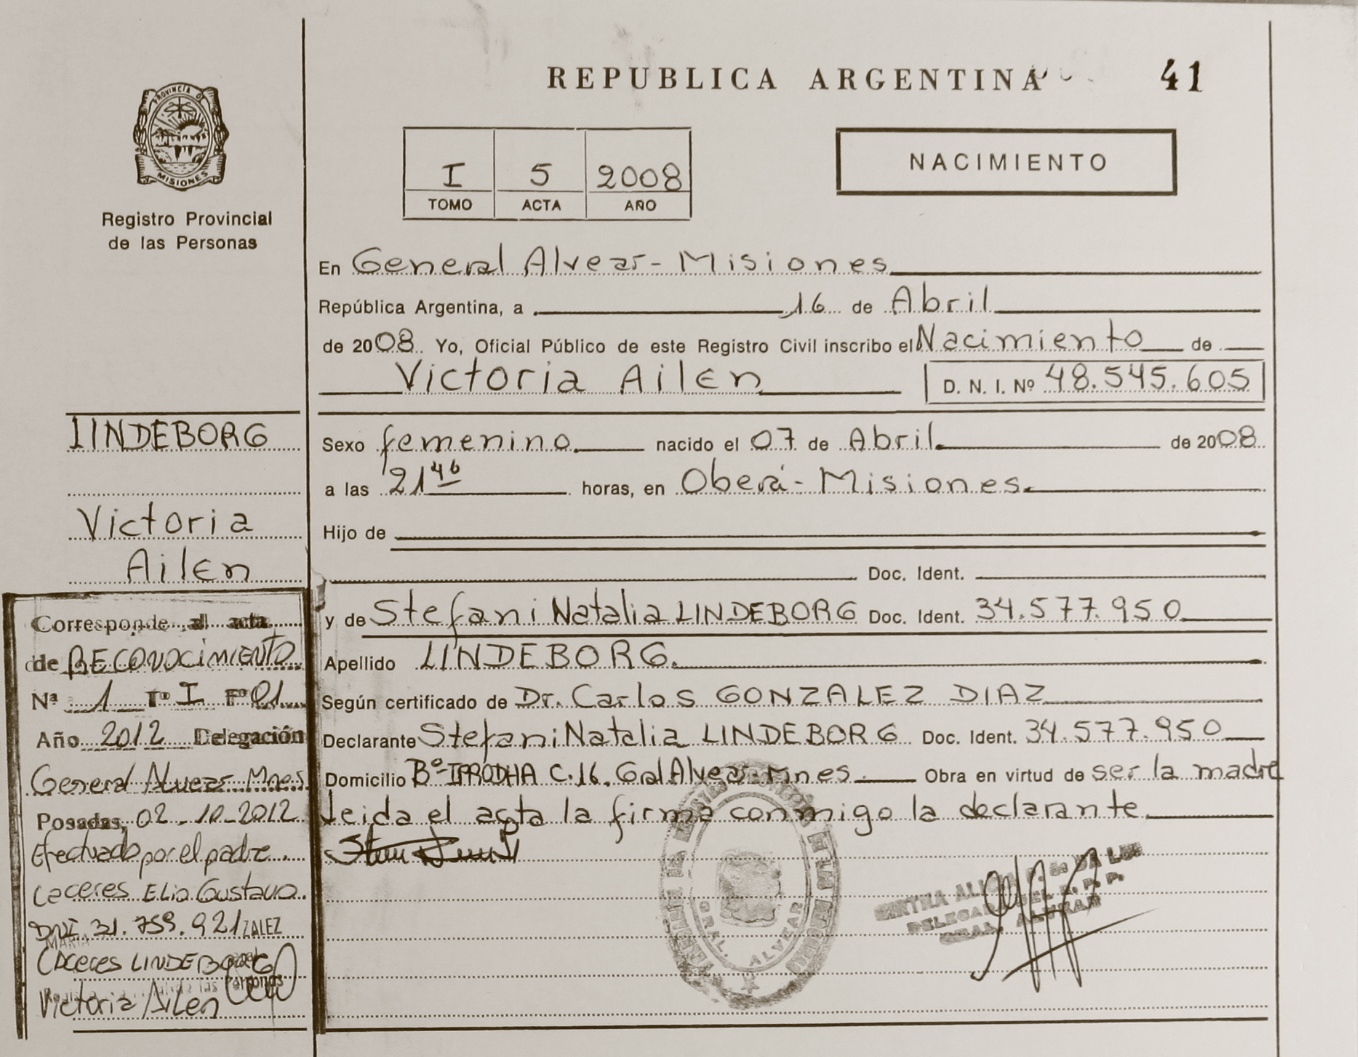 REPUBLICA ARGENTINA 41
PROVINCIA DE
MISIONES
Registro Provincial
de las Personas
I 5 2008
TOMO ACTA AÑO
NACIMIENTO
En General Alvear - Misiones
República Argentina, a 16 de Abril
de 2008 Yo, Oficial Público de este Registro Civil inscribo el Nacimiento de
Victoria Ailen D. N. I. Nº 48.545.605
Sexo femenino nacido el 07 de Abril de 2008
a las 21 46 horas, en Oberá - Misiones
Hijo de
Doc. Ident.
y de Stefani Natalia LINDEBORG Doc. Ident. 34.577.950
Apellido LINDEBORG
Según certificado de Dr. Carlos GONZALEZ DIAZ
Declarante Stefani Natalia LINDEBORG Doc. Ident. 34.577.950
Domicilio Bº IPRODHA C.16. Gral Alvear - Mnes. Obra en virtud de ser la madre
leida el acta la firma conmigo la declarante
GRAL. ALVEAR
LINDEBORG
Victoria
Ailen
Corresponde al acta
de RECONOCIMIENTO
Nª 1 Tº I Fº 01
Año 2012 Delegación
General Alvear Mnes
Posadas, 02-10-2012
Efectuado por el padre
Caceres Elio Gustavo
DNI. 31.759.921
CACERES LINDEBORG
Victoria Ailen